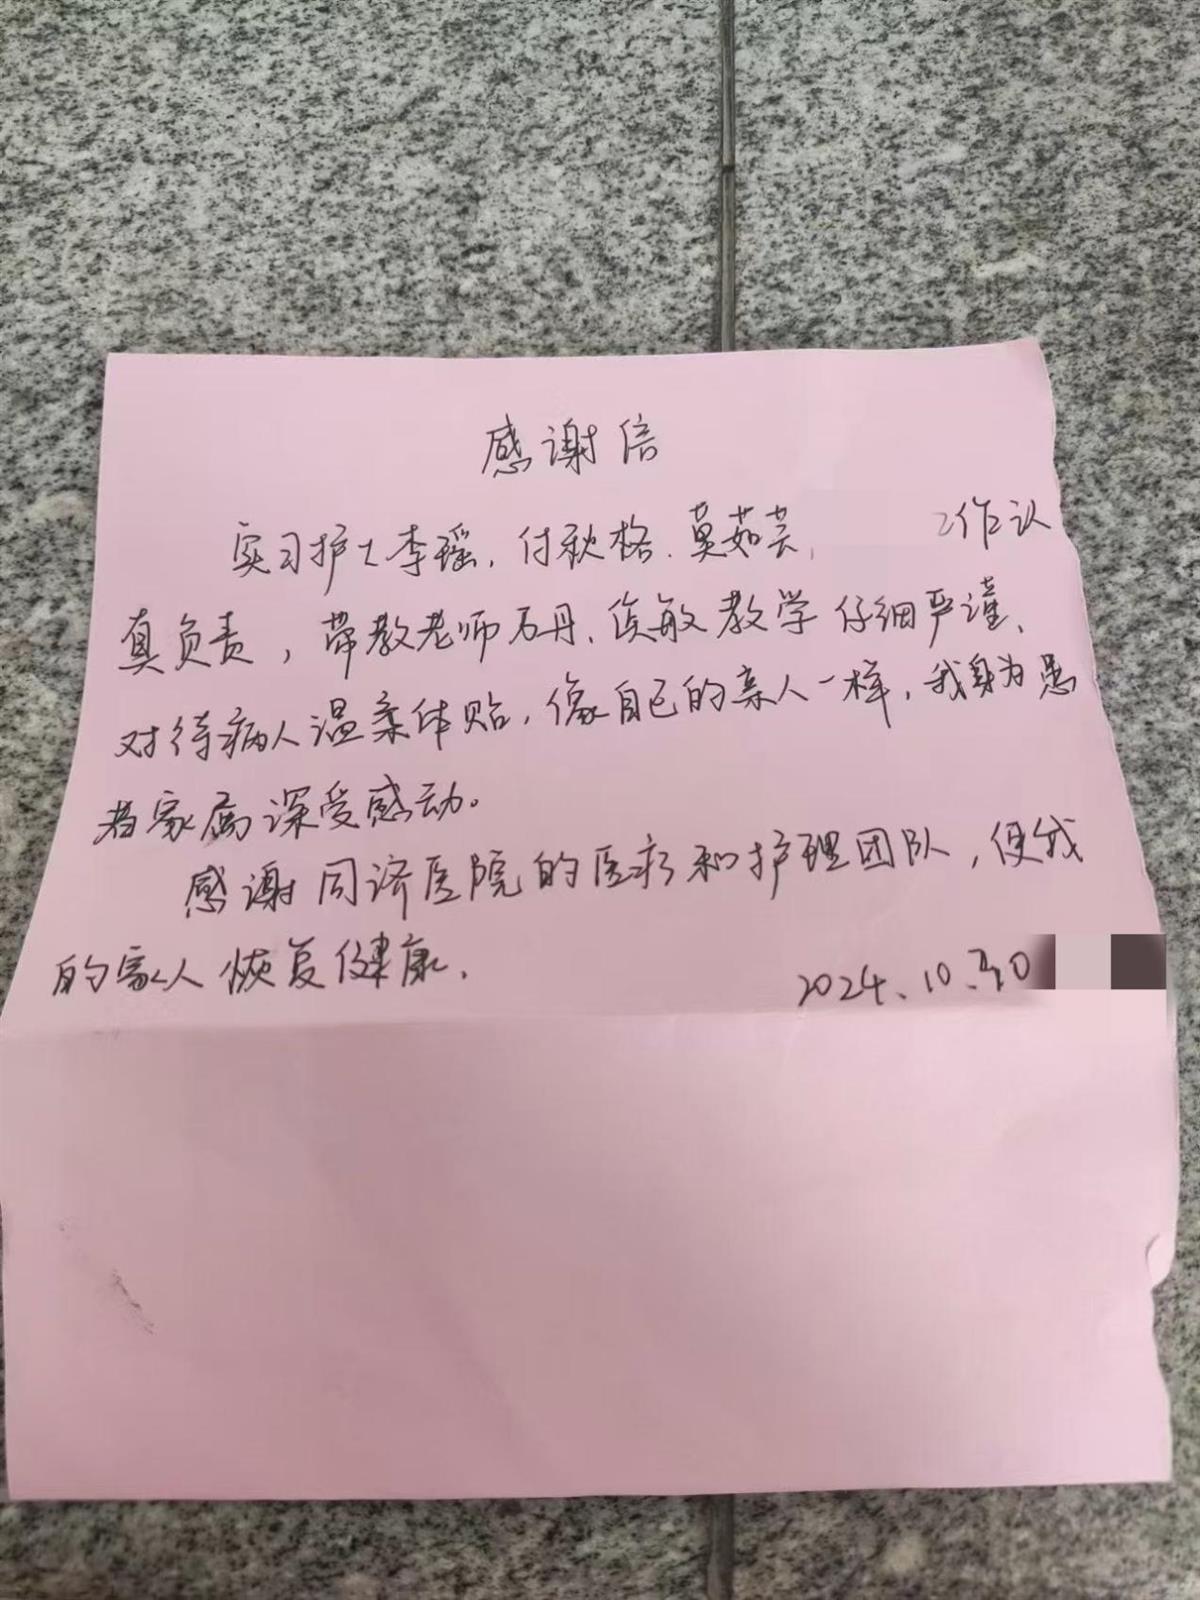 感谢信
实习护士李瑶，付秋格、莫茹芸， 工作认
真负责，带教老师石丹、侯敏教学仔细严谨、
对待病人温柔体贴，像自己的亲人一样，我身为患
者家属深受感动。
感谢同济医院的医疗和护理团队，使我
的家人恢复健康．
2024.10.30